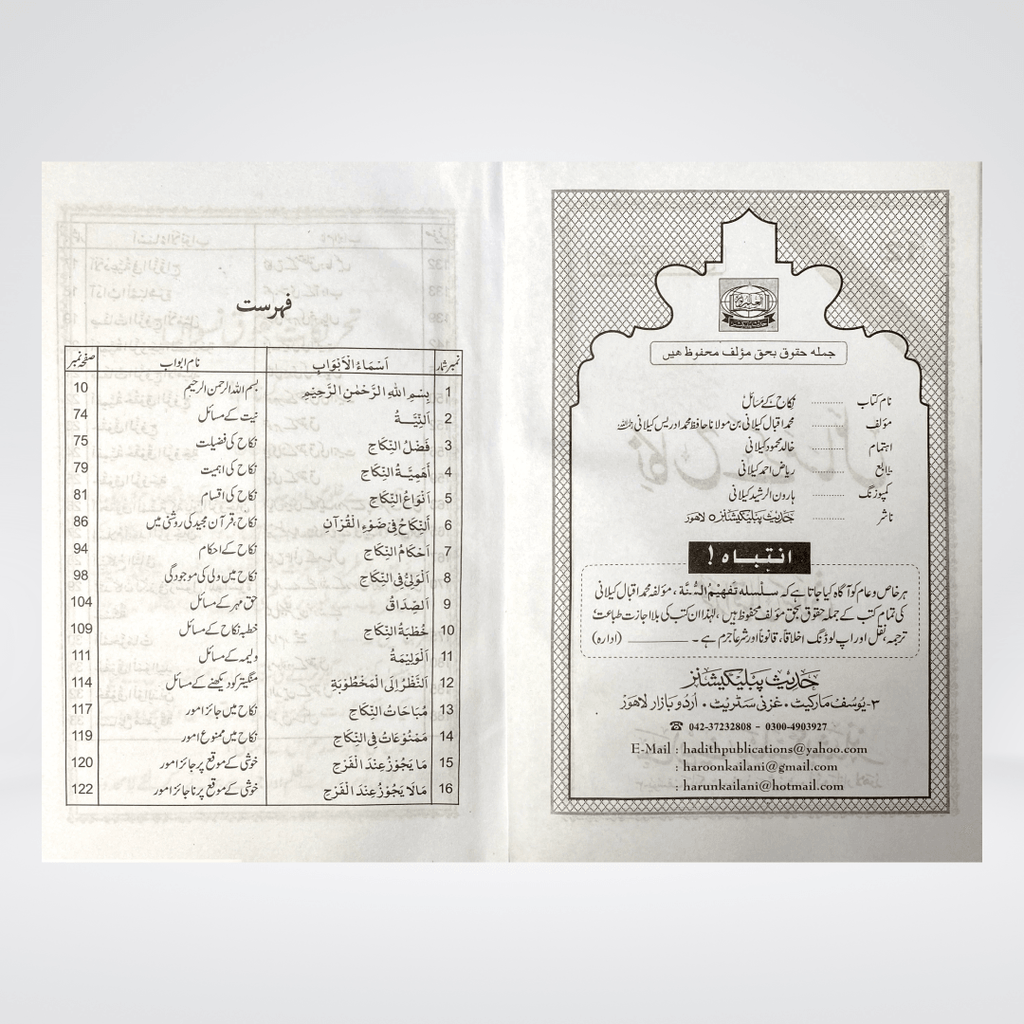 جملہ حقوق بحق مؤلف محفوظ ھیں
نام کتاب ............ نکاح کے مسائل
مؤلف ............ محمد اقبال کیلانی بن مولانا حافظ محمد ادریس کیلانی
اہتمام ............ خالد محمود کیلانی
طابع ............ ریاض احمد کیلانی
کمپوزنگ ............ ہارون الرشید کیلانی
ناشر ............ حدیث پبلیکیشنز لاہور
انتباہ !
ہر خاص و عام کو آگاہ کیا جاتا ہے کہ سلسلہ تفہیم السُّنَّۃ ، مؤلفہ محمد اقبال کیلانی
کی تمام کتب کے جملہ حقوق بحق مؤلف محفوظ ہیں ، لہٰذا ان کتب کی بلا اجازت طباعت ؛
ترجمہ ، نقل اور اپ لوڈنگ اخلاقاً ، قانوناً اور شرعاً جرم ہے ۔ ________ (ادارہ)
حدیث پبلیکیشنز
۳- یوسف مارکیٹ ، غزنی سٹریٹ ، اردو بازار لاہور
☎ 042-37232808 - 0300-4903927
E-Mail : hadithpublications@yahoo.com
: haroonkailani@gmail.com
: harunkailani@hotmail.com
فہرست
نمبر شمار اَسْمَاءُ الْاَبْوَابِ نام ابواب صفحہ نمبر
1 بِسْمِ اللّٰهِ الرَّحْمٰنِ الرَّحِيْمِ بسم اللہ الرحمن الرحیم 10
2 اَلنِّيَّةُ نیت کے مسائل 74
3 فَضْلُ النِّكَاحِ نکاح کی فضیلت 75
4 اَهَمِيَّةُ النِّكَاحِ نکاح کی اہمیت 79
5 اَنْوَاعُ النِّكَاحِ نکاح کی اقسام 81
6 اَلنِّكَاحُ فِىْ ضَوْءِ الْقُرْآنِ نکاح ، قرآن مجید کی روشنی میں 86
7 اَحْكَامُ النِّكَاحِ نکاح کے احکام 94
8 اَلْوَلِىُّ فِى النِّكَاحِ نکاح میں ولی کی موجودگی 98
9 اَلصِّدَاقُ حق مہر کے مسائل 104
10 خُطْبَةُ النِّكَاحِ خطبہ نکاح کے مسائل 109
11 اَلْوَلِيْمَةُ ولیمہ کے مسائل 111
12 اَلنَّظَرُ اِلَى الْمَخْطُوْبَةِ منگیتر کو دیکھنے کے مسائل 114
13 مُبَاحَاتُ النِّكَاحِ نکاح میں جائز امور 117
14 مَمْنُوْعَاتٌ فِى النِّكَاحِ نکاح میں ممنوع امور 119
15 مَا يَجُوْزُ عِنْدَ الْفَرَحِ خوشی کے موقع پر جائز امور 120
16 مَا لَا يَجُوْزُ عِنْدَ الْفَرَحِ خوشی کے موقع پر ناجائز امور 122